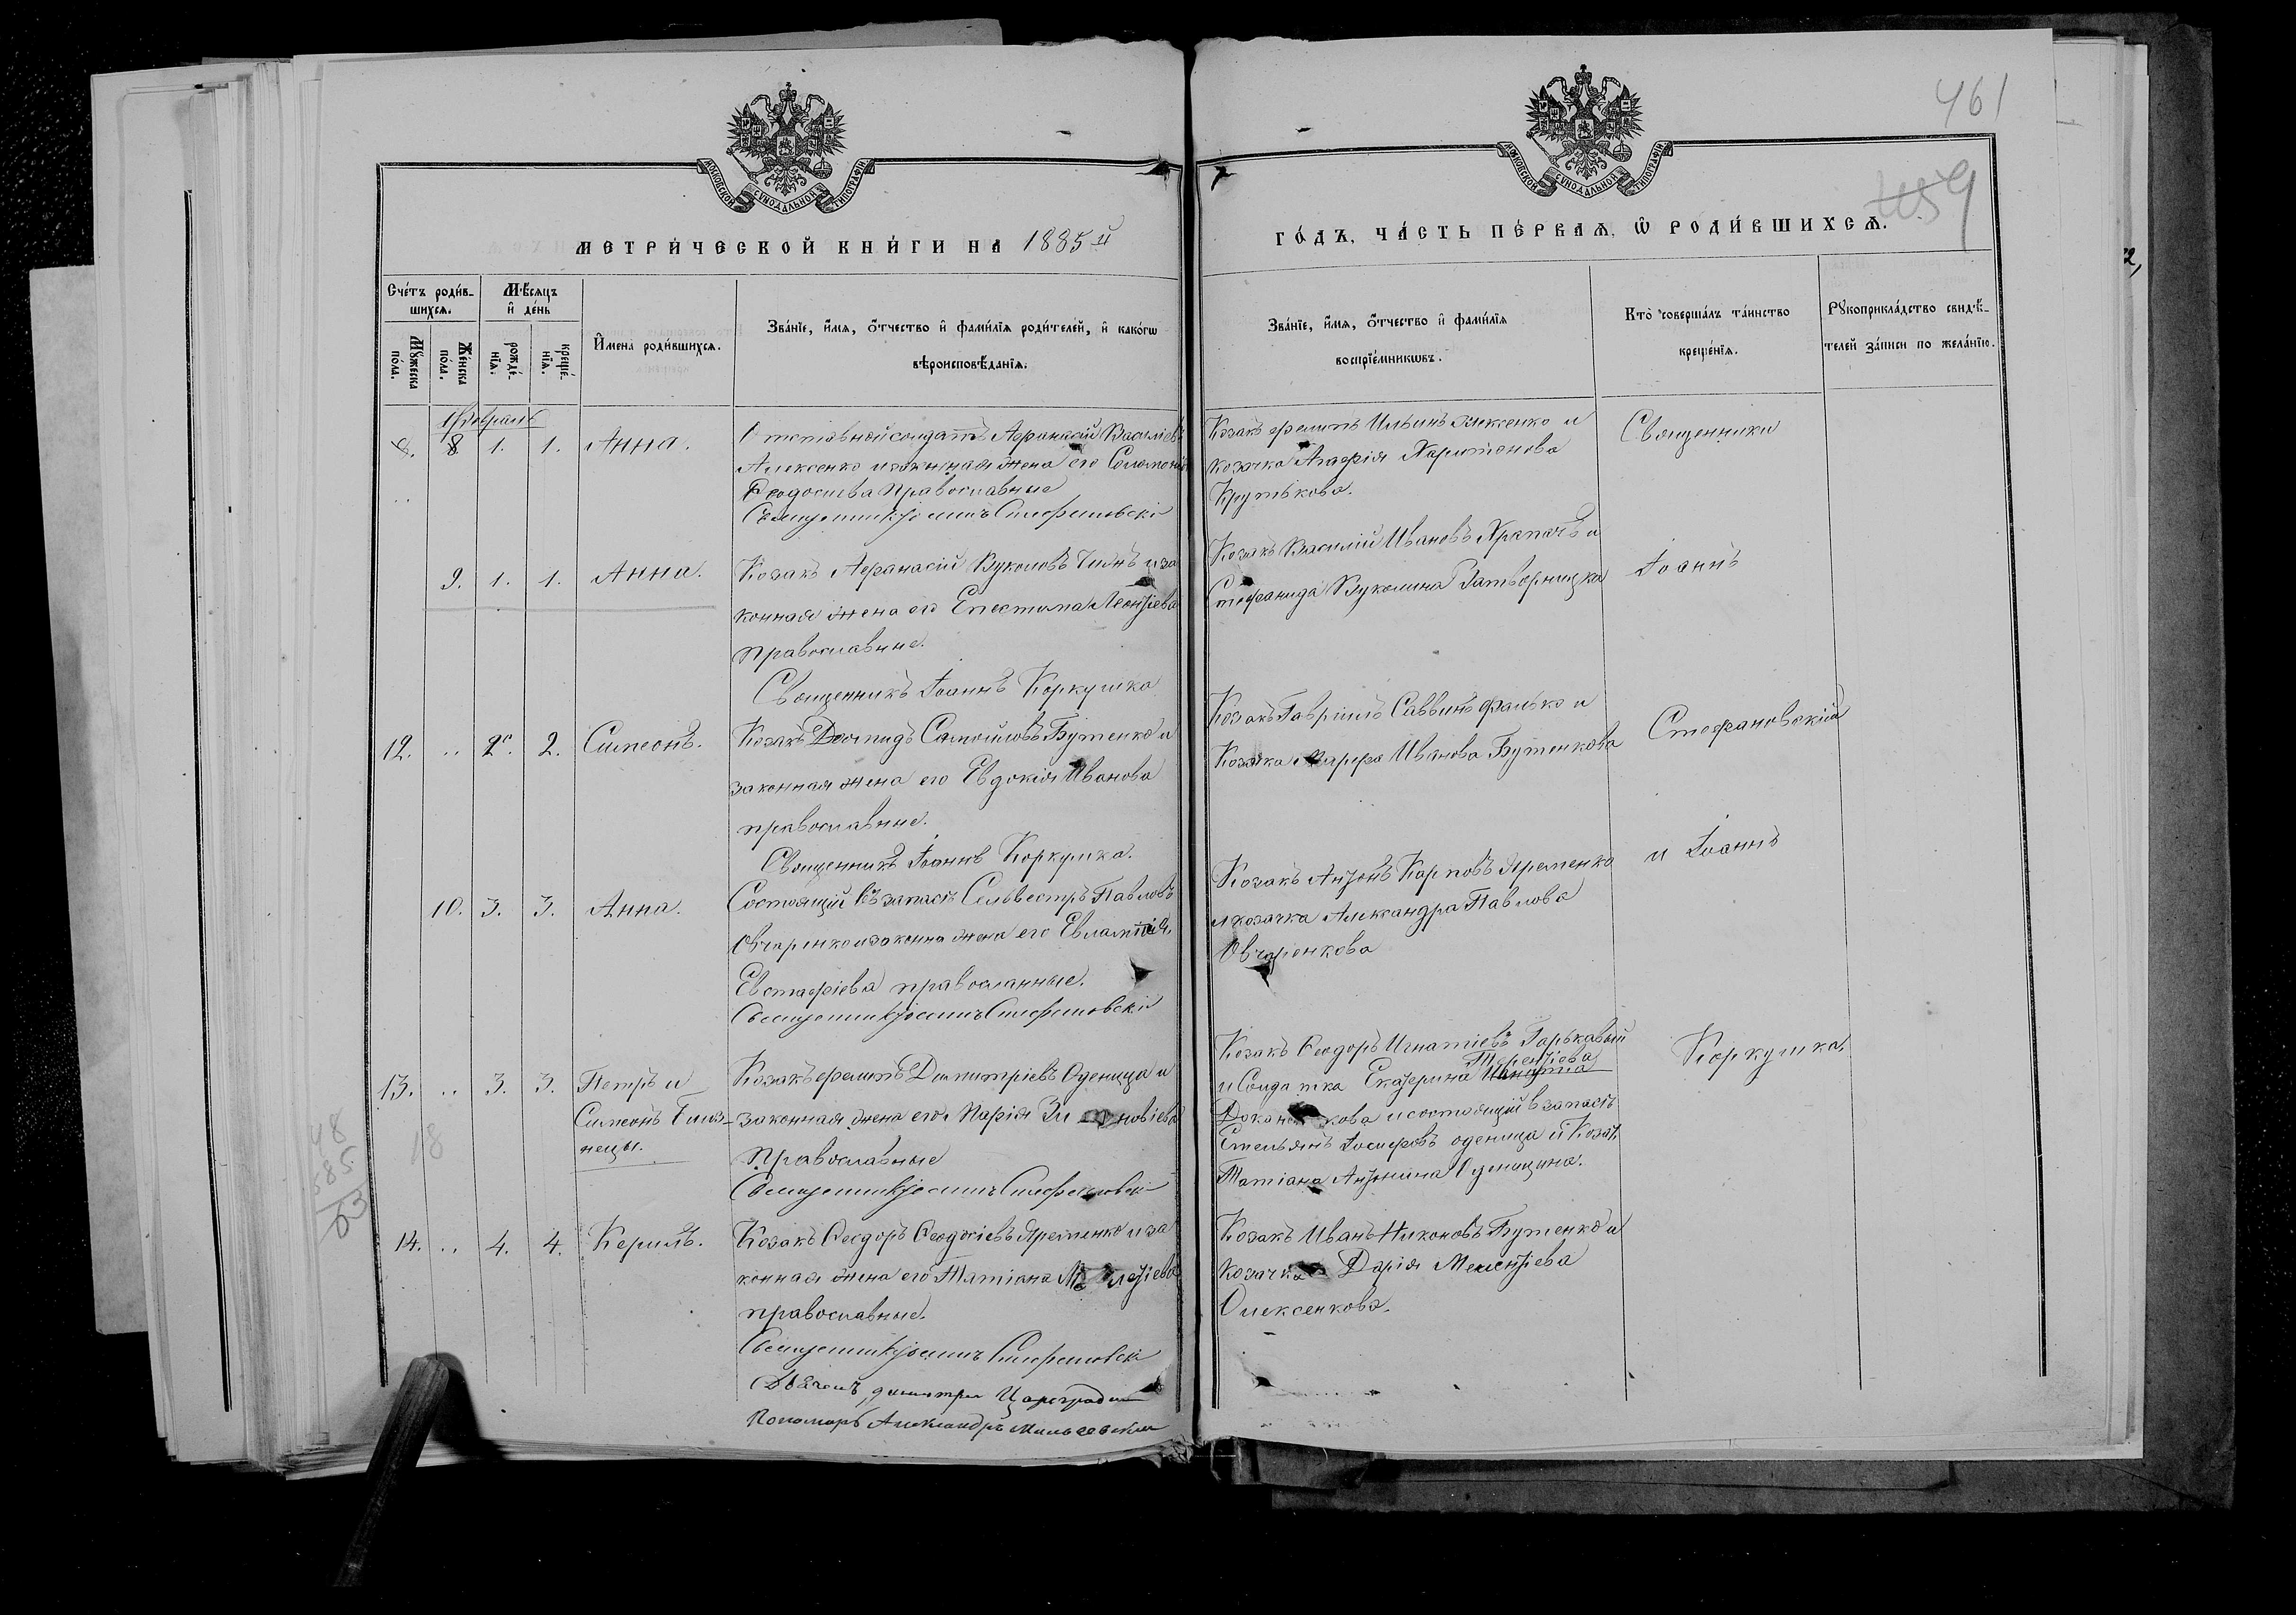 461
459
МОСКОВСКОЙ СУНОДАЛЬНОЙ ТИПОГРАФІИ
МОСКОВСКОЙ СУНОДАЛЬНОЙ ТИПОГРАФІИ
МЕТРИ́ЧЕСКОЙ КНИ́ГИ НА 1885й
ГО́ДЪ, ЧА́СТЬ ПЕ́РВАЯ, Ѽ РОДИ́ВШИХСЯ.
Сче́тъ роди́в-
шихся.
Мꙋ́жеска по́ла.
Же́нска по́ла.
Мѣ́сяцъ и҆ де́нь
рожде́-
нїя.
креще́-
нїя.
И҆мена̀ роди́вшихся.
Зва́нїе, и҆́мя, ѻ҆́тчество и҆ фами́лїя роди́телей, и҆ како́гѡ
вѣроисповѣ́данїя.
Зва́нїе, и҆́мя, ѻ҆́тчество и҆ фами́лїя
воспрїе́мникѡвъ.
Кто̀ соверша́лъ та́инство
креще́нїя.
Рꙋкоприкла́дство свидѣ́-
телей за́писи по жела́нїю.
Февраль
8. 1. 1. Анна.
Отставной солдатъ Афанасій Василіевъ
Алексенко и законная жена его Соломонія
Ѳеодосиева Православные
Священникъ Іоаннъ Стефановскій
Козакъ Филипъ Ильинъ Алексенко и
козачка Агафія Харитонова
Крутькова.
Священники
9. 1. 1. Анна.
Козакъ Афанасій Вуколовъ Гиднъ и за
конная жена его Епестима Леонтіева
Православные.
Священникъ Іоаннъ Коркушка
Козакъ Василій Ивановъ Храпачъ и
Стефанида Вуколина Затворницка
Іоаннъ
12. .. 2. 2. Симеонъ.
Козакъ Деомидъ Самойловъ Бутенко и
законная жена его Евдокія Иванова
православные.
Священникъ Іоаннъ Коркушка.
Козакъ Гавріилъ Саввинъ Фалько и
Козачка Марфа Иванова Бутенкова
Стефановскій
10. 3. 3. Анна.
Состоящій въ запасѣ Сельвестръ Павловъ
Овчаренко и законна жена его Евлампія
Евстафіева православные.
Священникъ Іоаннъ Стефановскій
Козакъ Антонъ Карповъ Яременко
и козачка Александра Павлова
Овчаренкова
и Іоаннъ
13. .. 3. 3. Петръ и
Симеонъ Близ-
нецы.
Козакъ Филипъ Димитріевъ Оденица и
законная жена его Марія Зи новіева
Православные
Священникъ Іоаннъ Стефановскій
Козакъ Ѳеодоръ Игнатіевъ Горькавый
Терентіева
и Солдатка Екатерина Игнатіа
кова и состоящій в запасѣ
Емельянъ Іосифовъ Оденица и Козач.
Татіана Антонина Оденицина.
Коркушка.
18
48
585
63
14. .. 4. 4. Кирилъ.
Козакъ Ѳеодоръ Ѳеодосіевъ Яременко и за
конная жена его Татіана Ме летіева
православные.
Священникъ Іоаннъ Стефановскій
Козакъ Иванъ Никоновъ Бутенко и
козачка Дарія Мелентіева
Олексенкова.
Дьяконъ Димитри
Пономарь Александръ